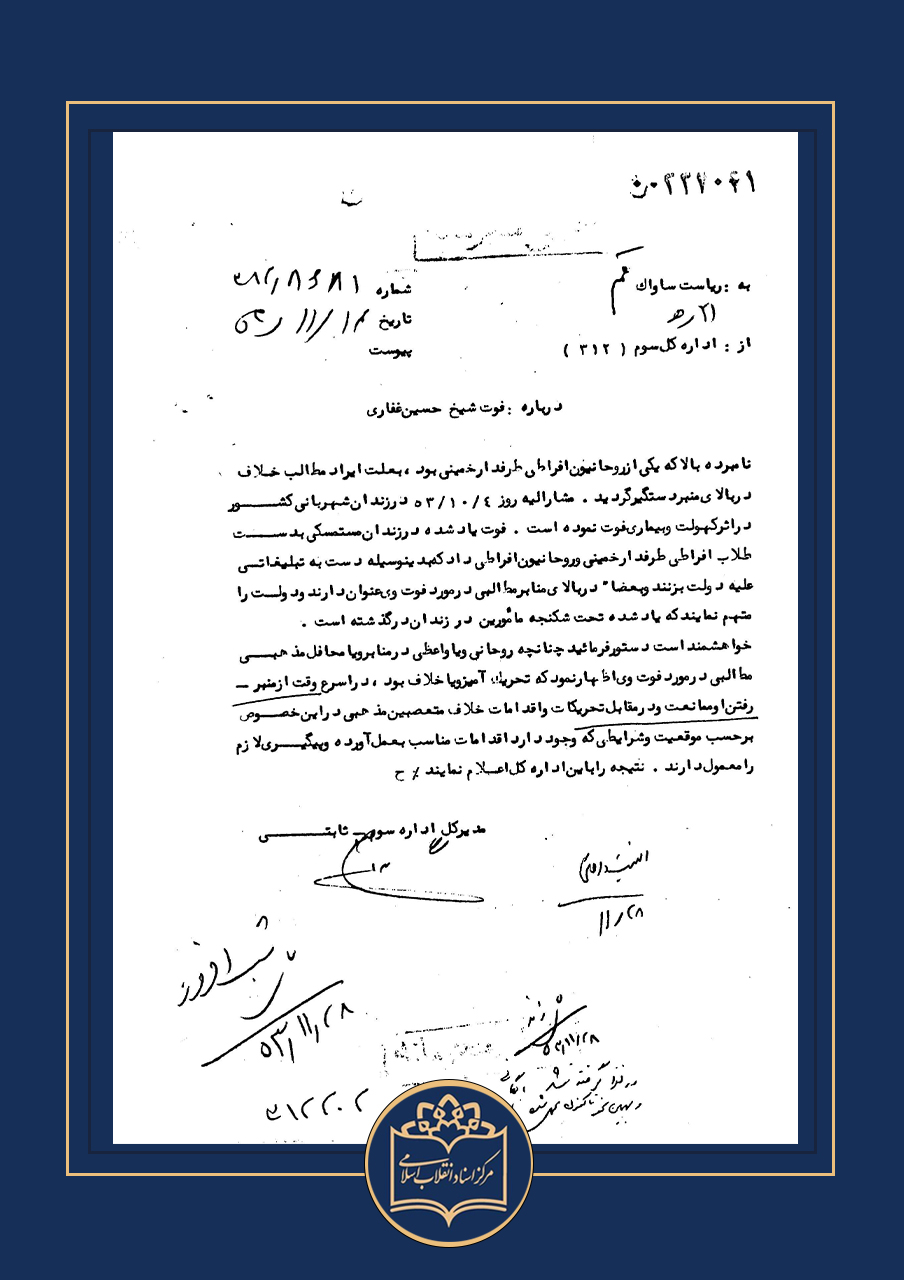 به : ریاست ساواك قم
شماره
تاریخ
از : اداره کل سوم ( ۳۱۲ )
پیوست
درباره : فوت شیخ حسین غفاری
نامبرده بالا که یکی از روحانیون افراطی طرفدار خمینی بود ، بعلت ایراد مطالب خلاف
در بالای منبر دستگیر گردید . مشارالیه روز ۵۳/۱۰/۴ در زندان شهربانی کشور
در اثر کهولت و بیماری فوت نموده است . فوت یاد شده در زندان مستمسکی بدست
طلاب افراطی طرفدار خمینی و روحانیون افراطی داد که بدینوسیله دست به تبلیغاتی
علیه دولت بزنند و بعضا" در بالای منابر مطالبی در مورد فوت وی عنوان دارند و دولت را
متهم نمایند که یاد شده تحت شکنجه مأمورین در زندان درگذشته است .
خواهشمند است دستور فرمائید چنانچه روحانی و یا واعظی در منابر و یا محافل مذهبی
مطالبی در مورد فوت وی اظهار نمود که تحریك آمیز و یا خلاف بود ، در اسرع وقت از منبر –
رفتن او ممانعت و در مقابل تحریکات و اقدامات خلاف متعصبین مذهبی در این خصوص
برحسب موقعیت و شرایطی که وجود دارد اقدامات مناسب بعمل آورده و پیگیری لازم
را معمول دارند . نتیجه را باین اداره کل اعلام نمایند ٪ ح
مدیر کل اداره سوم – ثابتی
۱۱/۲۸
۵۳/۱۱/۲۸
۵۳/۱۱/۲۸
در نظر گرفته شد
۳۱۲۲۰۲
مرکز اسناد انقلاب اسلامی